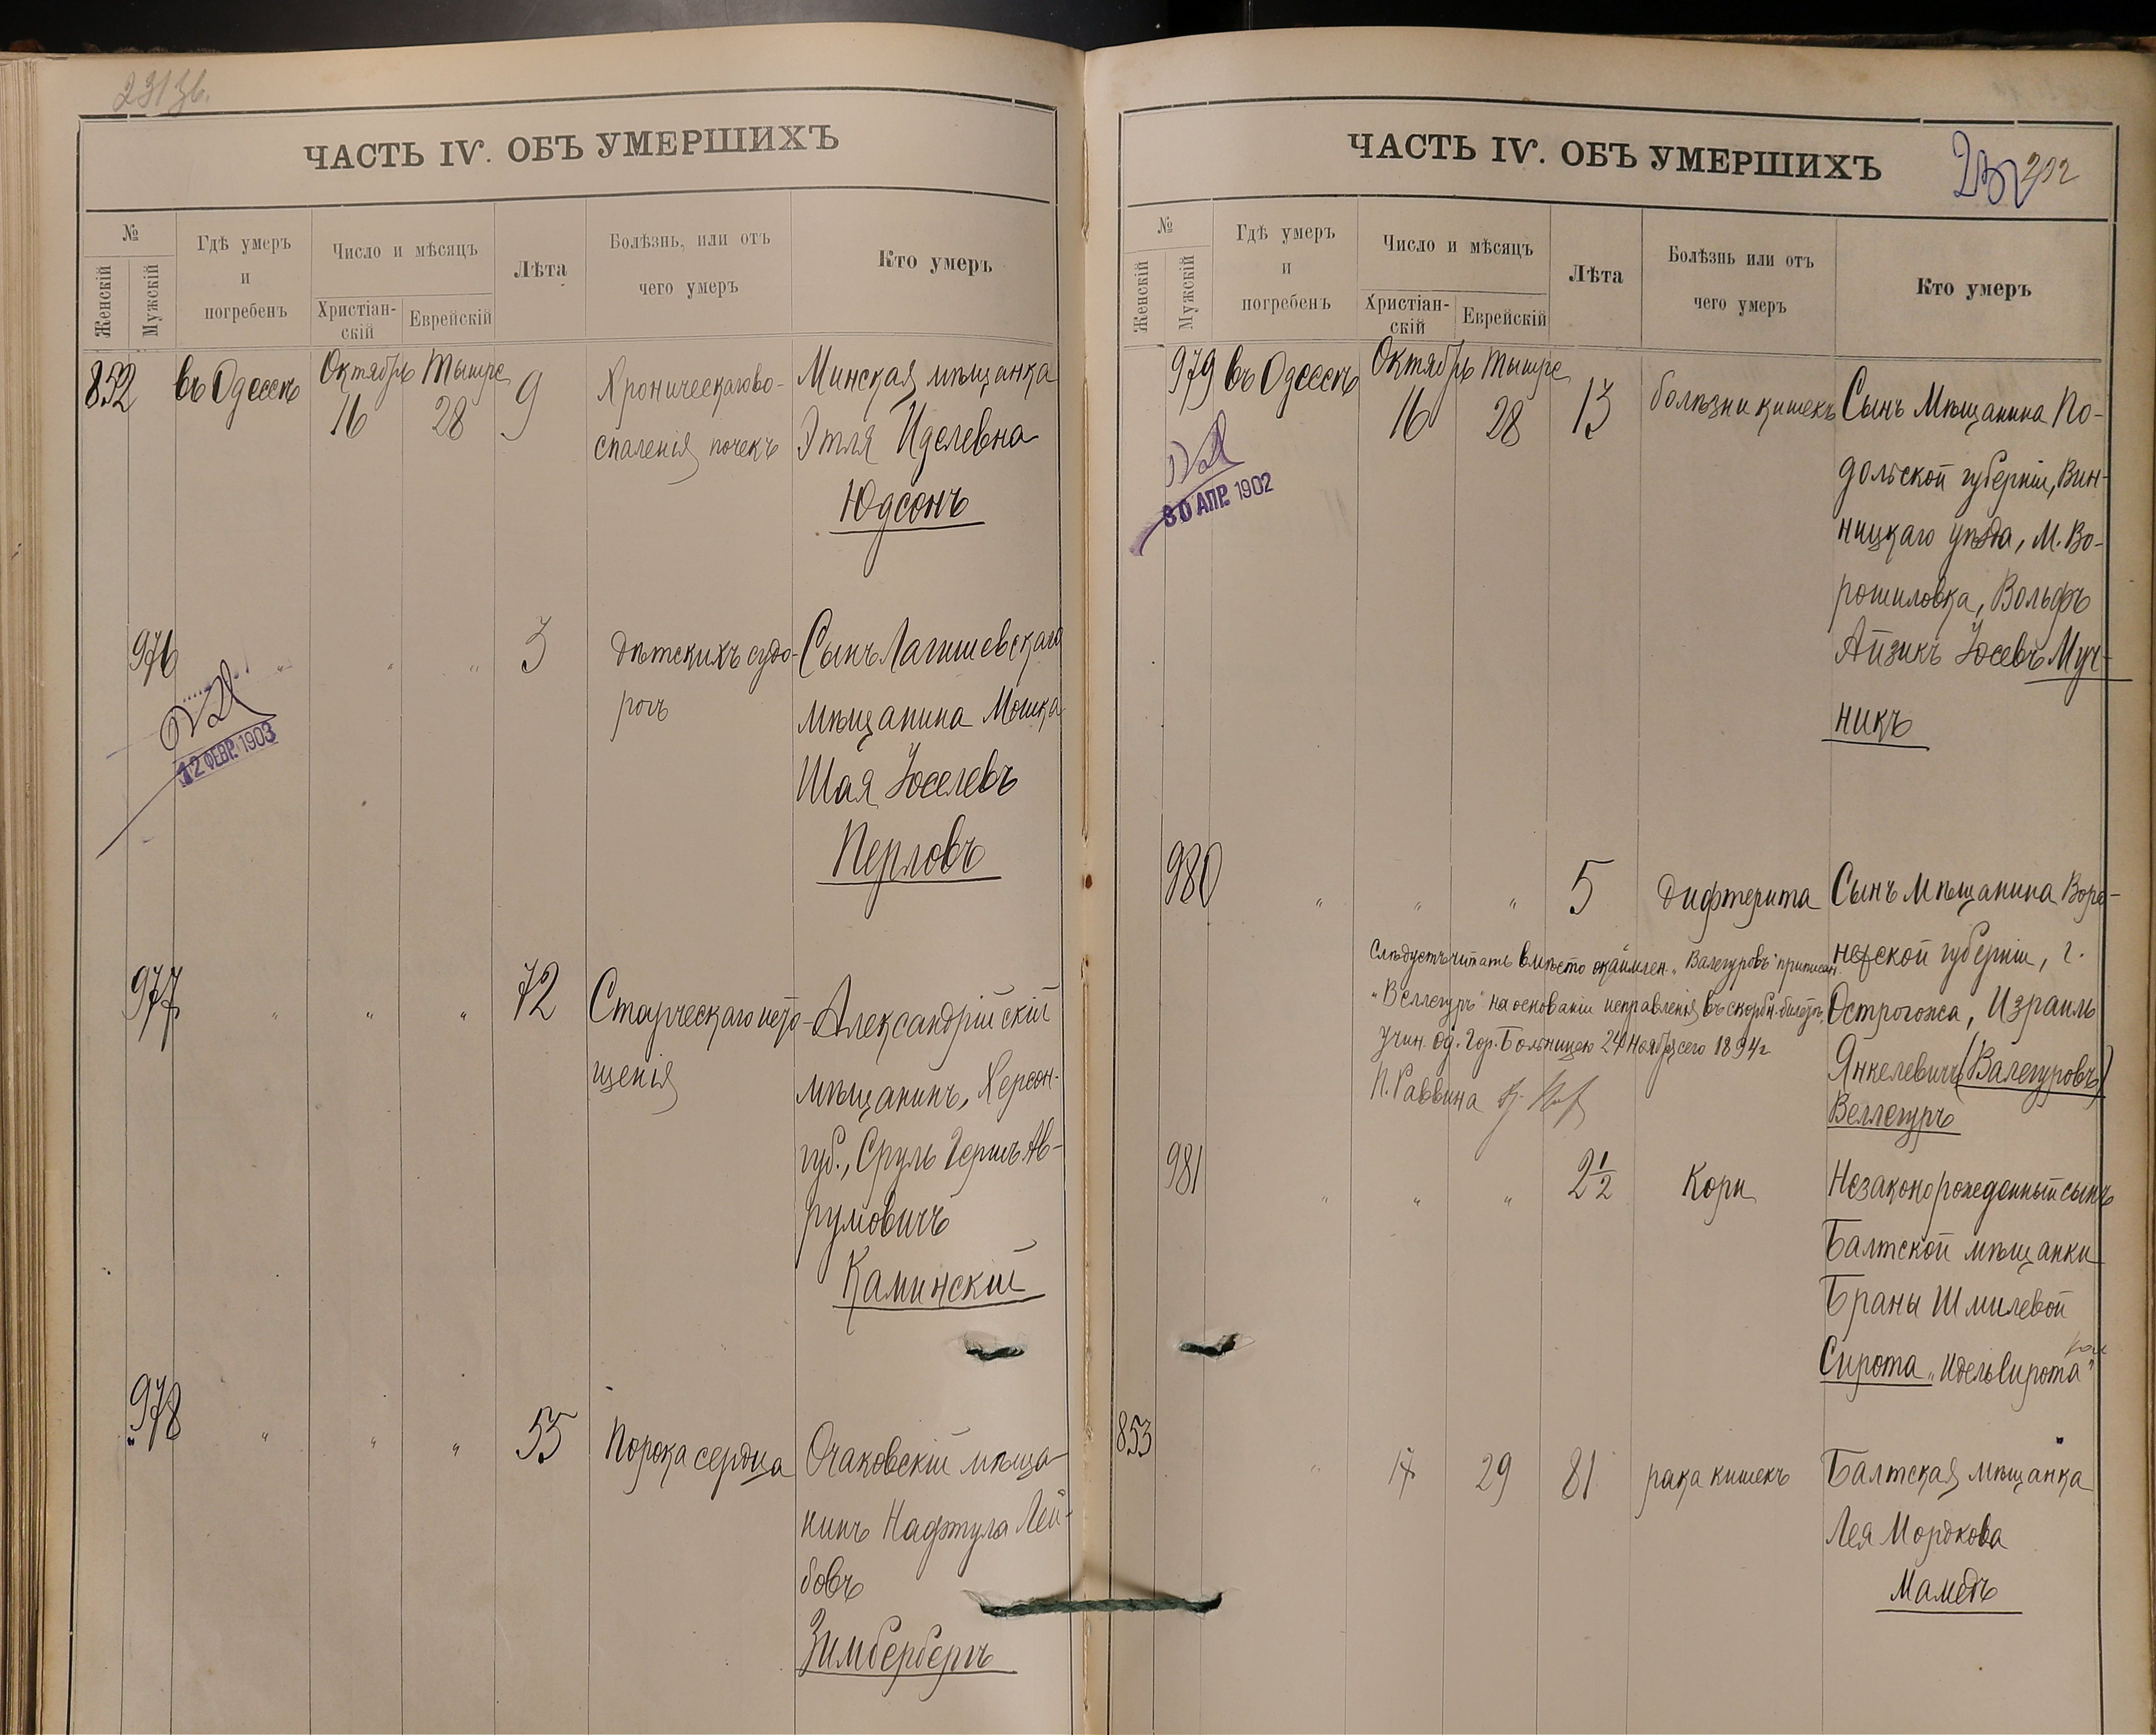 231 зб.
ЧАСТЬ IV. ОБЪ УМЕРШИХЪ
№
Женскій
Мужскій
Гдѣ умеръ
и
погребенъ
Число и мѣсяцъ
Христіан-
скій
Еврейскій
Лѣта
Болѣзнь, или отъ
чего умеръ
Кто умеръ
852 въ Одессѣ Октябрь Тышре 9 Хроническаго во- Минская мѣщанка
16 28 спаленія почекъ Этля Иделевна
Юдсонъ
976 " " " 3 Дѣтскихъ судо- Сынъ Лагишевскаго
рогъ мѣщанина Мошка
12 ФЕВР. 1903
Шая Іоселевъ
Перловъ
977 " " " 72 Старческаго исто- Александрійскій
щенія мѣщанинъ, Херсон.
губ., Сруль Гершъ Ав-
румовичъ
Каминскій
978 " " " 55 Порока сердца Очаковскій мѣща-
нинъ Нафтула Лей-
бовъ
Зимбербергъ
ЧАСТЬ IV. ОБЪ УМЕРШИХЪ
232
№
Женскій
Мужскій
Гдѣ умеръ
и
погребенъ
Число и мѣсяцъ
Христіан-
скій
Еврейскій
Лѣта
Болѣзнь или отъ
чего умеръ
Кто умеръ
979 въ Одессѣ Октябрь Тышре 13 болѣзни кишекъ Сынъ Мѣщанина По-
16 28
30 АПР. 1902
дольской губерніи, Вин-
ницкаго уѣзда, М. Во-
рошиловка, Вольфъ
Айзикъ Іосевъ Муч-
никъ
980 " " " 5 Дифтерита Сынъ Мѣщанина Воро-
нежской губерніи, г.
Острогожа, Израиль
Янкелевичъ (Валегуровъ)
Веллегуръ
Слѣдуетъ читать вмѣсто окаймлен. "Валегуровъ" приписан.
"Веллегуръ" на основаніи исправленія въ скорбн. билетѣ,
Учин. Од. Гор. Больницею 24 Ноября сего 1894 г.
П. Раввина
981 " " " 2 1/2 Кори Незаконорожденный сынъ
Балтской мѣщанки
Браны Шмилевой
Сирота "Идель Сирота"
853 " 17 29 81 рака кишекъ Балтская мѣщанка
Лея Мордкова
Мамедъ